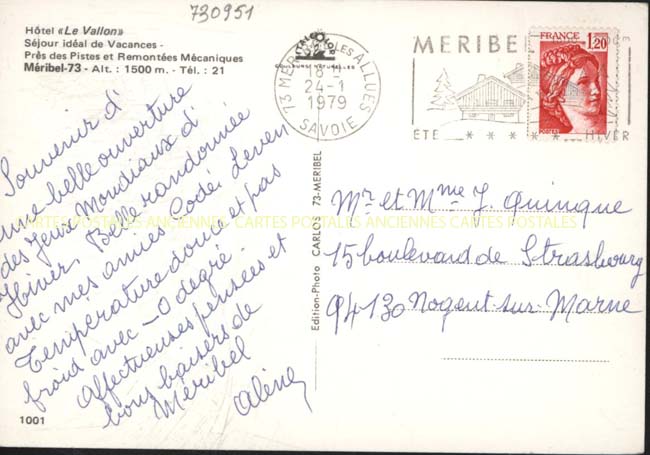 730951
Hôtel «Le Vallon»
Séjour idéal de Vacances -
Près des Pistes et Remontées Mécaniques
Méribel-73 - Alt. : 1500 m. - Tél. : 21
Souvenir d'
une belle ouverture
des Jeux Mondiaux d'
Hiver. Belle randonnée
avec mes amies
Température douce et pas
froid avec -0 degré.
Affectueuses pensées et
bons baisers de
Méribel
1001
Edition-Photo CARLOS 73-MERIBEL
73 MERIBEL LES ALLUES
18 H
24-1
1979
SAVOIE
MERIBEL
ETE * * * * * HIVER
FRANCE
1,20
POSTES
Mr et Mme J. Quinque
15 boulevard de Strasbourg
94130 Nogent-sur-Marne
CARTES POSTALES ANCIENNES CARTES POSTALES ANCIENNES CARTES POSTALES